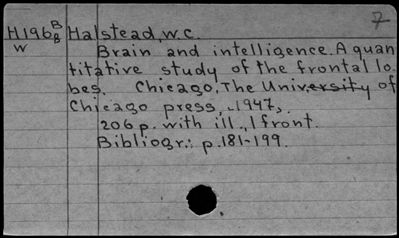 7
H196 B/B Halstead, W.C.
W Brain and intelligence. A quan
titative study of the frontal lo-
bes. Chicago, The University of
Chicago press, 1947,.
206 p. with ill., 1 front.
Bibliogr.: p. 181-199.